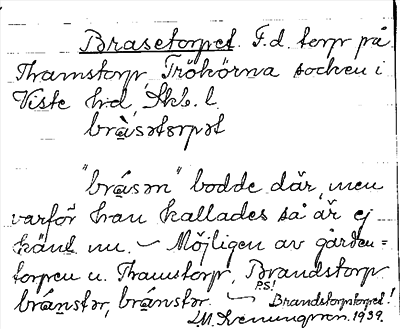 Brasetorpet. F.d. torp på
Thamstorp, Tröhörna socken i
Viste hd, Skb. l.
brà̱səto̱rpət
"brá̱sən" bodde där, men
varför han kallades så är ej
känt nu. – Möjligen av gården=
torpen u. Thamstorp, Brandstorp
brá̱nstər, brá̱nstər. –
P.S!
Brandstorpstorpet!
1939.